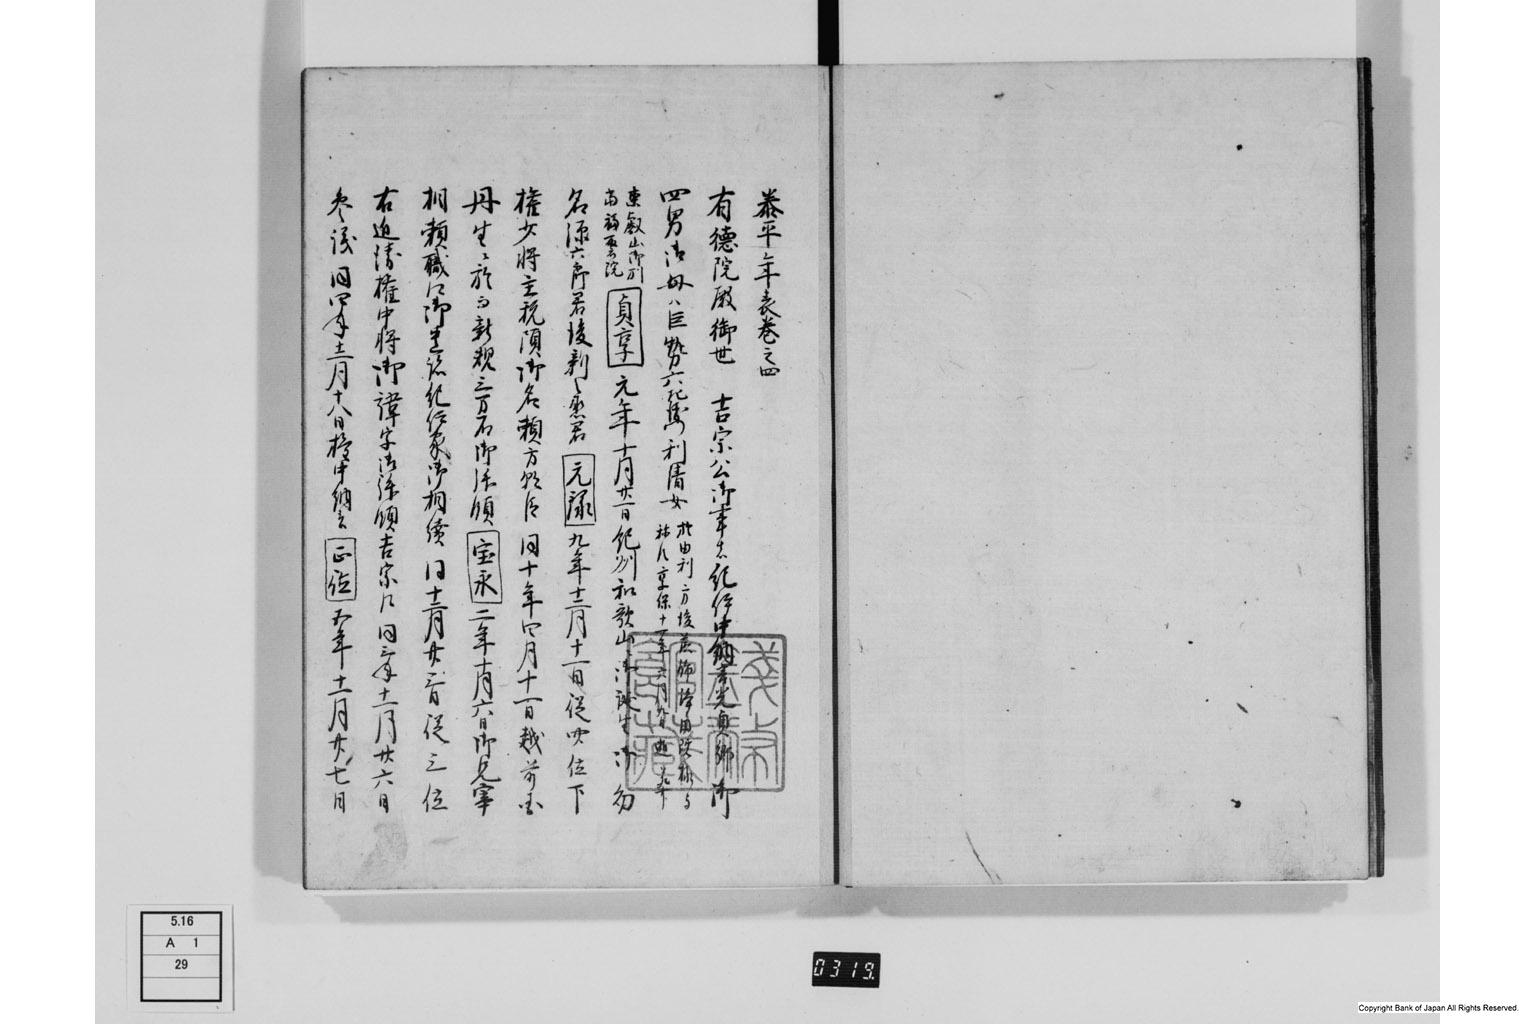 泰平年表巻之四
有徳院殿御世 吉宗公御事者紀伊中納言光貞卿御
四男御母ハ巨勢六左衛門利清女
於由利ノ方後薨御浄円院様と
称ス享保十一年六月九日逝
東叡山御別
当福聚院
貞享元年十月廿一日紀州和歌山ニ御誕生御幼
名源六郎君後新之丞君元禄九年十二月十一日従四位下
権少将主税頭御名頼方 同十年四月十一日越前国
丹生ニ於而新規三万石御添領宝永二年十月六日御兄宰
相頼職御遺跡紀伊家御相続 同十二月 従三位
右近衛権中将御諱字御添領吉宗ト同三年十一月廿六日
参議同四年十二月十八日権中納言正徳五年十二月廿七日
5.16
A 1
29
0319.
Copyright Bank of Japan All Rights Reserved.